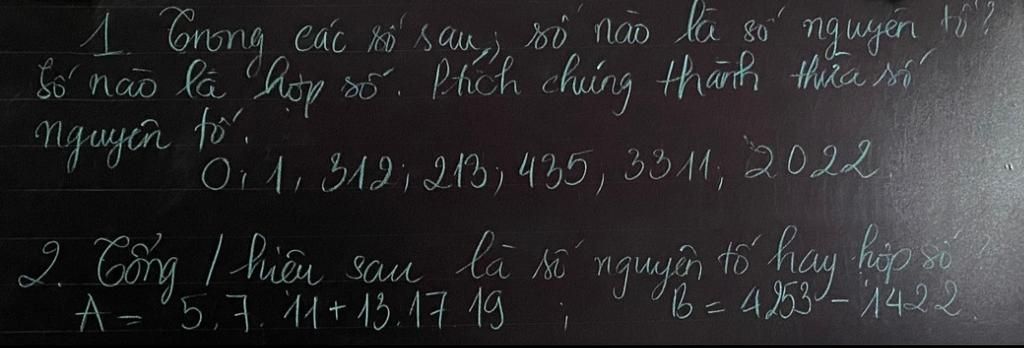 1. Trong các số sau, số nào là số nguyên tố?
Số nào là hợp số. Ptích chúng thành thừa số
nguyên tố.
0; 1, 312; 213; 435, 3311; 2022.
2. Tổng / hiệu sau là số nguyên tố hay hợp số?
A = 5.7.11 + 13.17 19 ; B = 4253 - 1422.